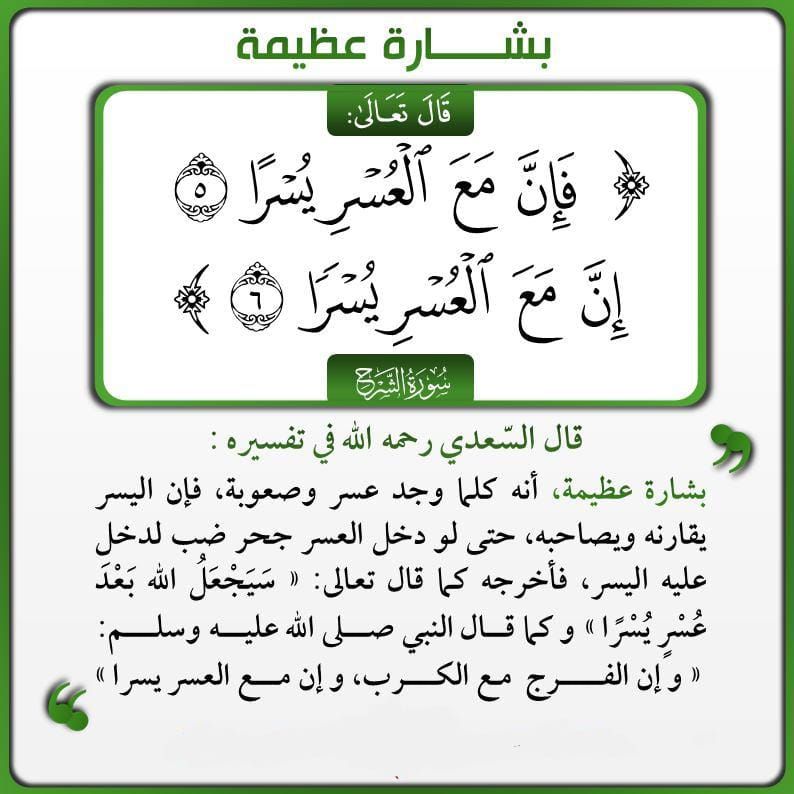 بشـــارة عظيمة
قَالَ تَعَالَىٰ:
﴿ فَإِنَّ مَعَ ٱلْعُسْرِ يُسْرًا ٥
إِنَّ مَعَ ٱلْعُسْرِ يُسْرًا ٦ ﴾
سُورَةُ الشَّرْحِ
قال السّعدي رحمه الله في تفسيره :
بشارة عظيمة، أنه كلما وجد عسر وصعوبة، فإن اليسر
يقارنه ويصاحبه، حتى لو دخل العسر جحر ضب لدخل
عليه اليسر، فأخرجه كما قال تعالى: « سَيَجْعَلُ الله بَعْدَ
عُسْرٍ يُسْرًا » وكما قال النبي صلى الله عليه وسلم:
« وإن الفرج مع الكرب، وإن مع العسر يسرا »